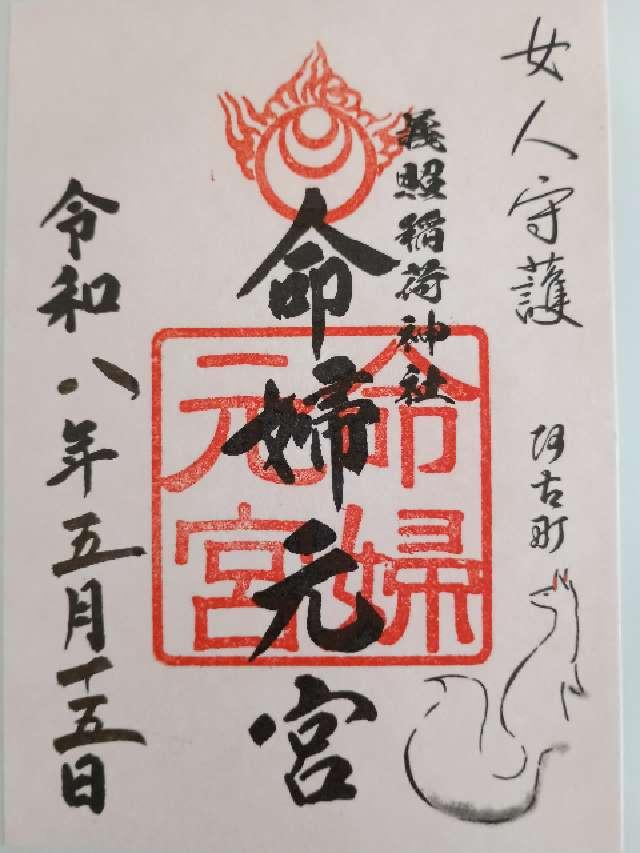 女人守護
阿古町
義照稲荷神社
命婦元宮
命婦元宮
令和八年五月十五日